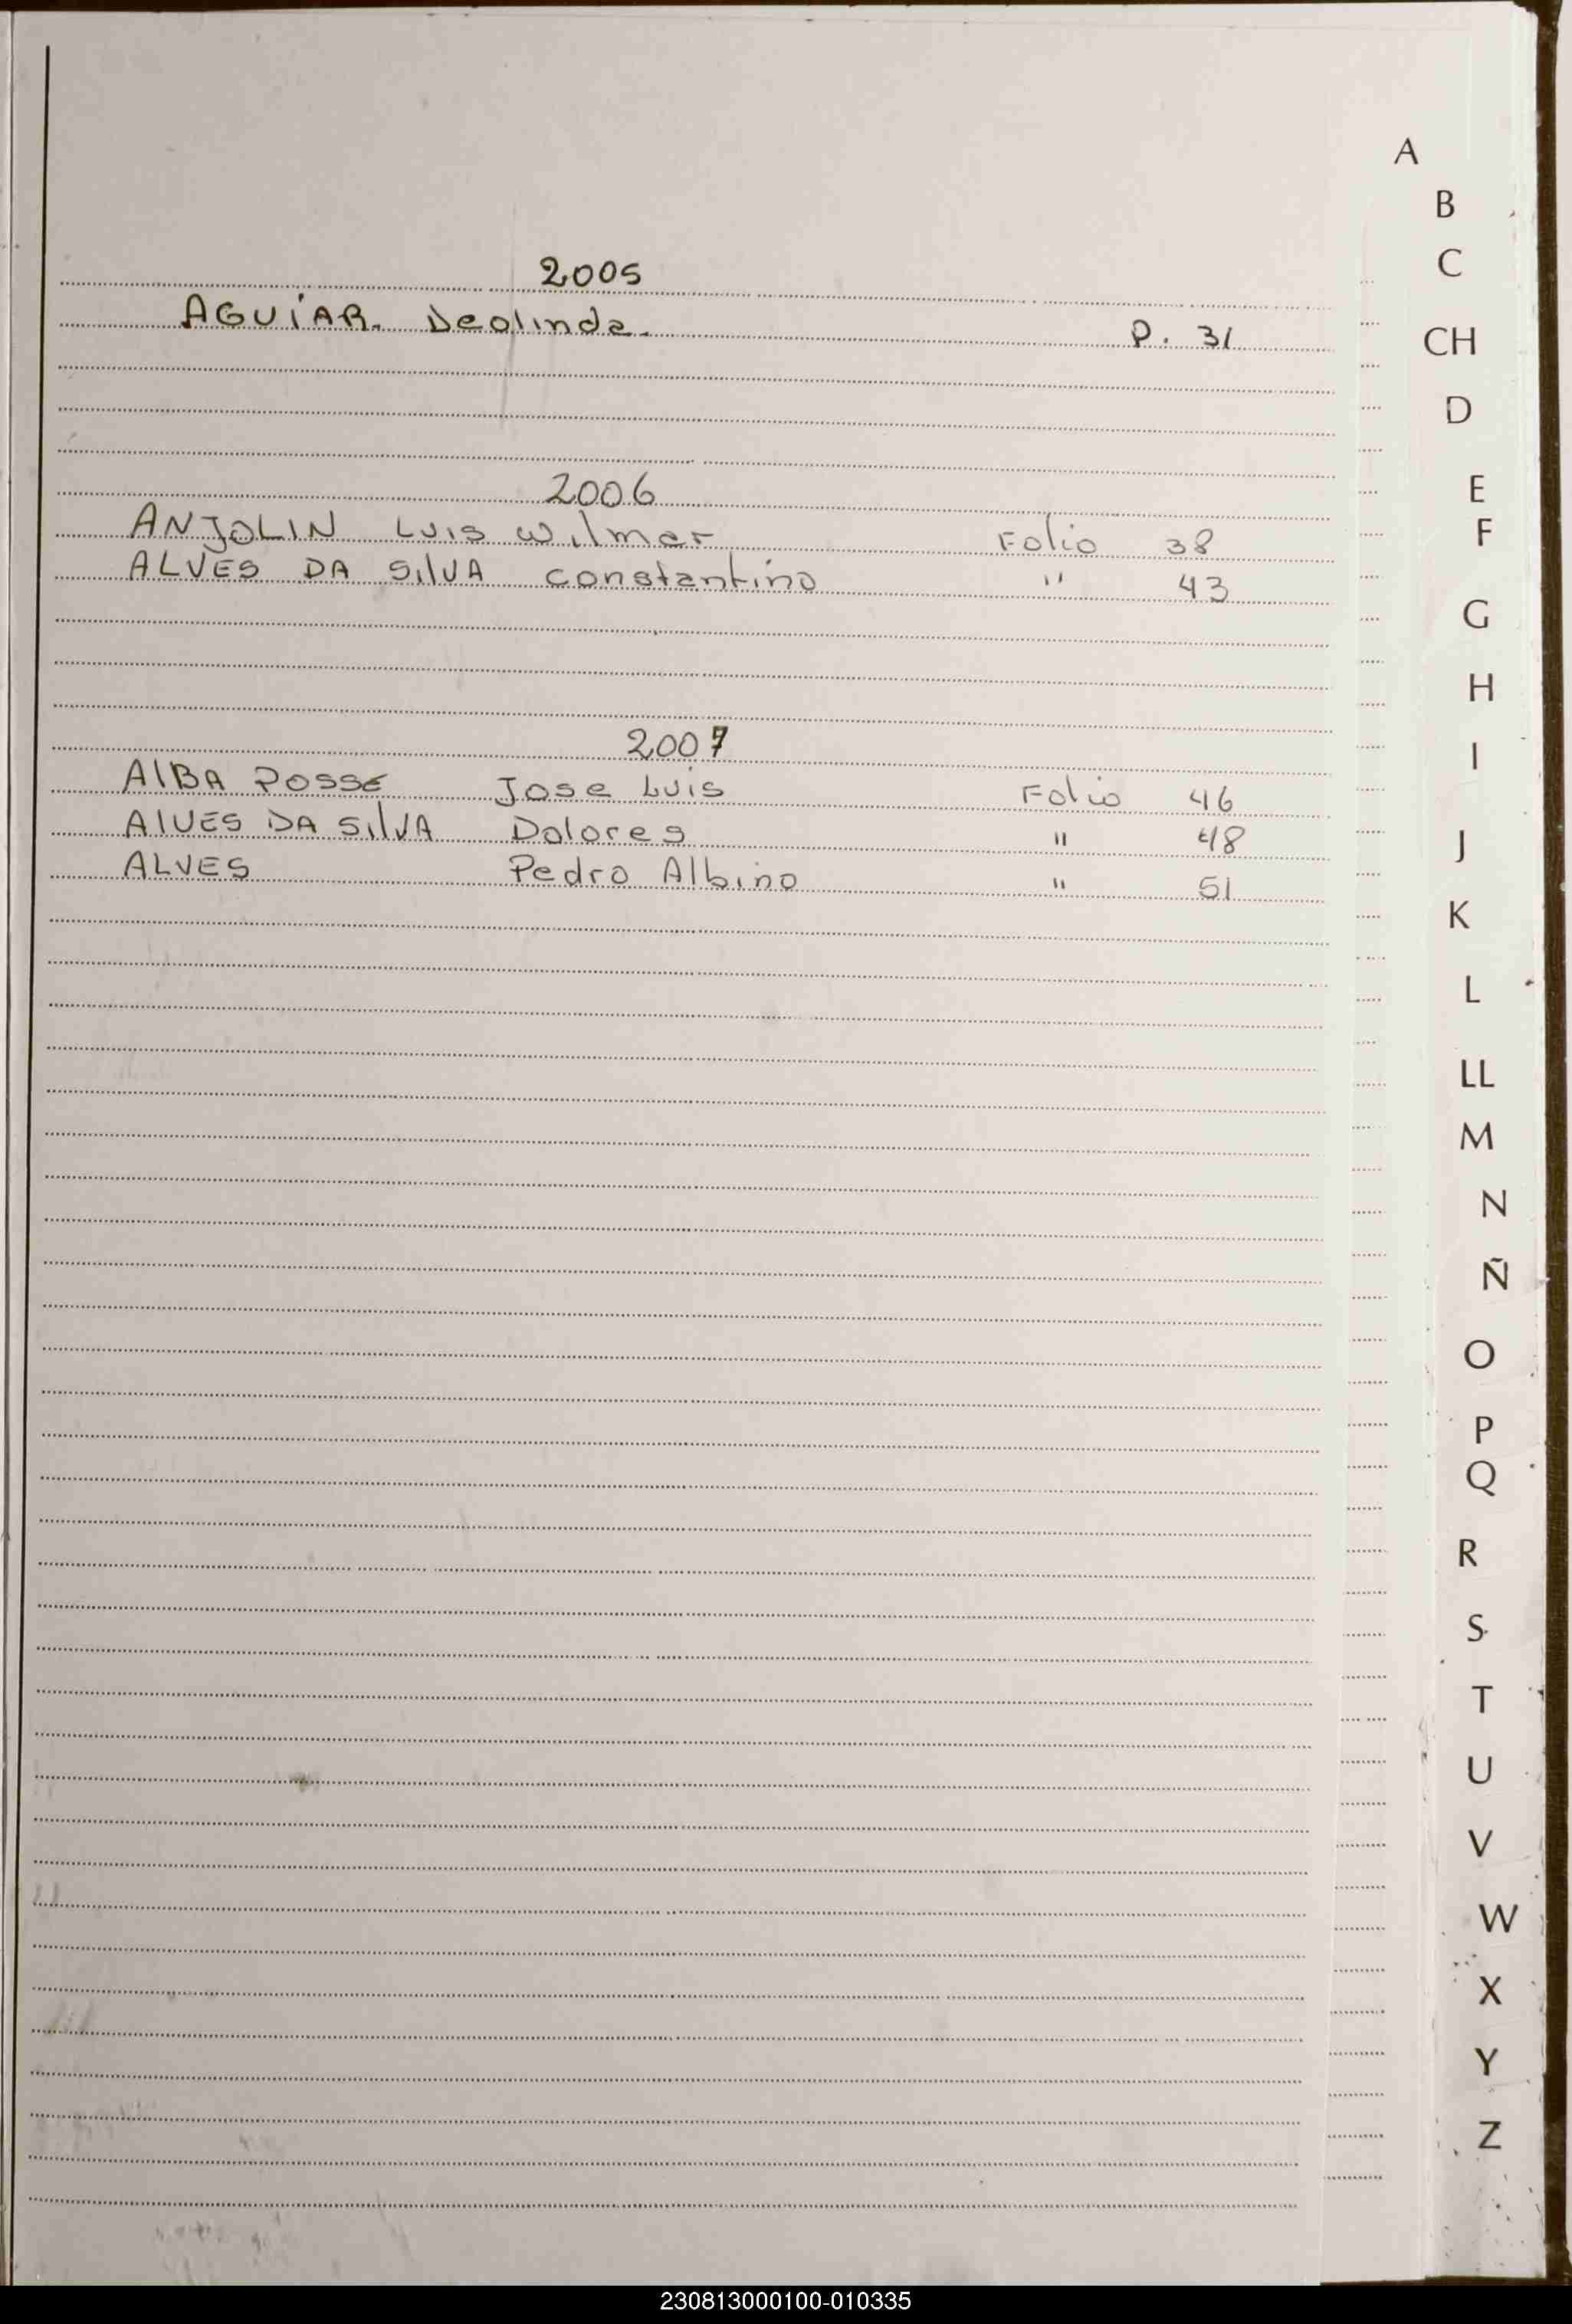 2005
AGUIAR. Deolinda. P. 31
2006
ANJOLIN LUIS Wilmar Folio 38
ALVES DA SilVA constantino " 43
2007
AlBA POSSE Jose Luis Folio 46
AlVES DA SilVA Dolores " 48
ALVES Pedro Albino " 51
A
B
C
CH
D
E
F
G
H
I
J
K
L
LL
M
N
Ñ
O
P
Q
R
S
T
U
V
W
X
Y
Z
230813000100-010335